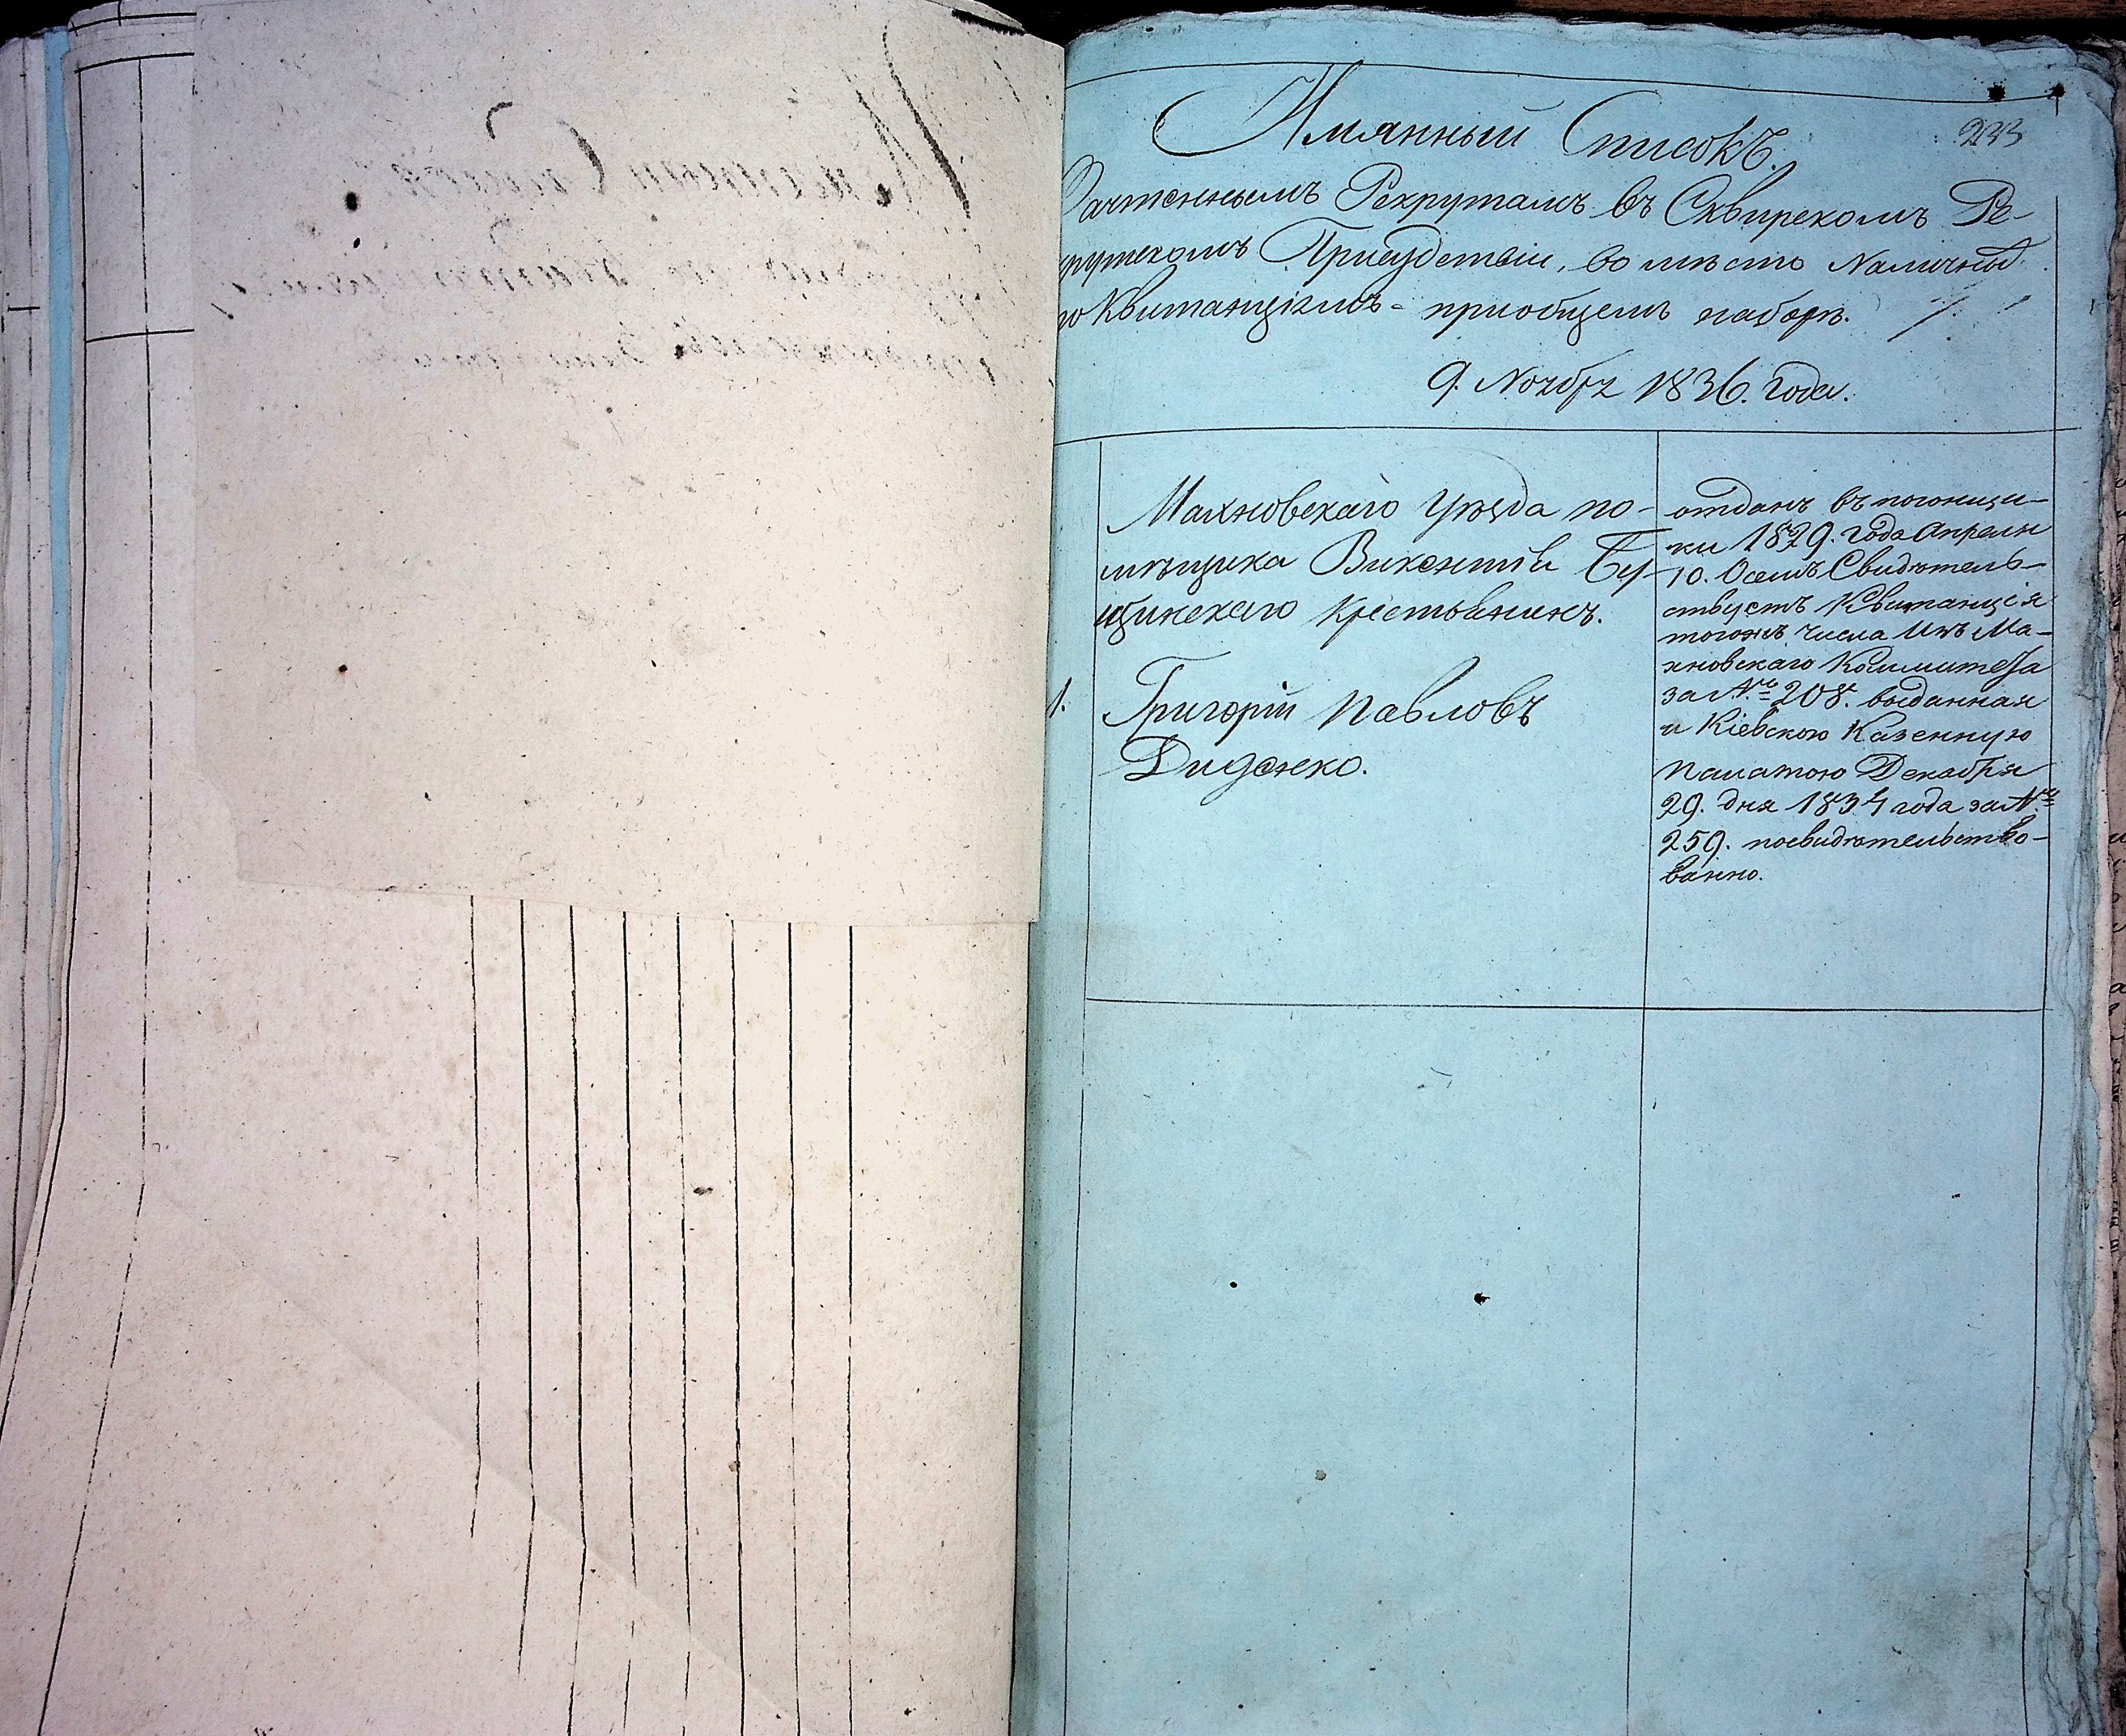 Имянный Списокъ.
233
Зачтеннымъ Рекрутамъ въ Сквирскомъ Ре-
крутскомъ Присудствіи, во мѣсто Наличной
по Квитанціямъ - приобщемъ наборѣ.
9. Ноября 1836. года.
Махновскаго уѣзда по-
мѣщика Викентія Бу-
щинскаго крестьянинъ.
1. Григорій Павловъ
Диденко.
отданъ въ погонщи-
ки 1829. года Апреля
10. Осемъ Свидѣтель-
ствуетъ Квитанція
тогожъ числа изъ Ма-
хновскаго Коммитета
за №. 208. выданная
и Кіевскою Казенную
Палатою Декабря
29. дня 1834 года за №.
259. посвидѣтельство-
ванно.